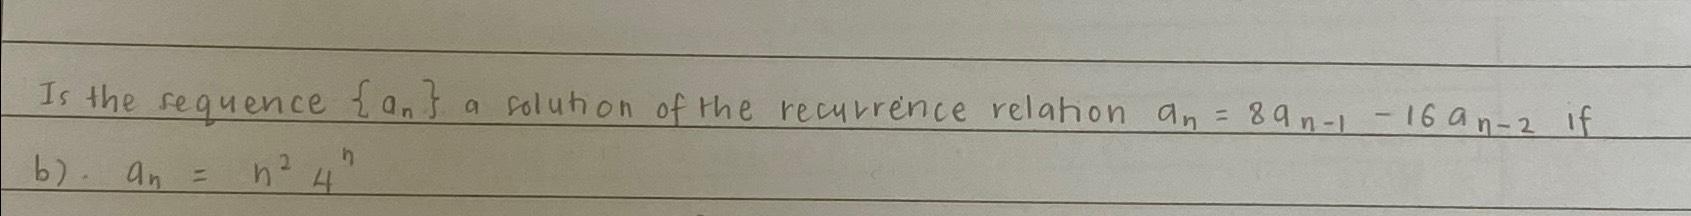 Is the sequence {aₙ} a solution of the recurrence relation aₙ = 8aₙ₋₁ - 16aₙ₋₂ if
b). aₙ = n² 4ⁿ